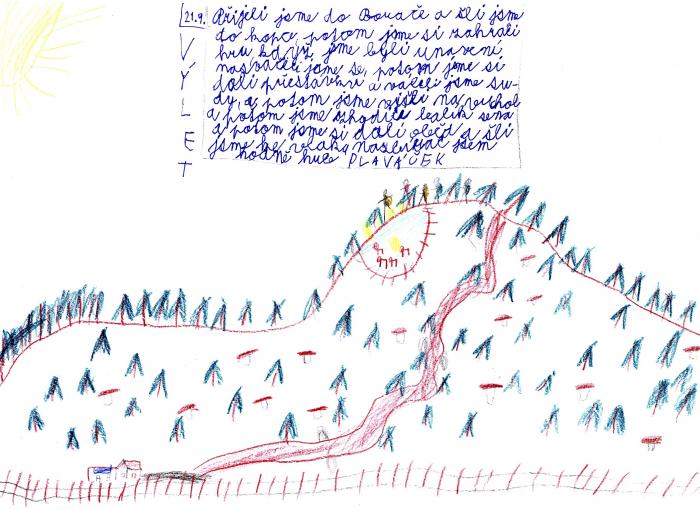 21.9.
VÝLET
Přijeli jsme do Borače a šli jsme
do kopce, potom jsme si zahráli
hru, když jsme byli unavení,
nasvačili jsme se, potom jsme si
dali přestávku a váleli jsme su-
dy, a potom jsme vyšli na vrchol
a potom jsme shodili balík sena
a potom jsme si dali oběd a šli
jsme ke vlaku nasvačit jsem
hodně huče PLAVÁČEK